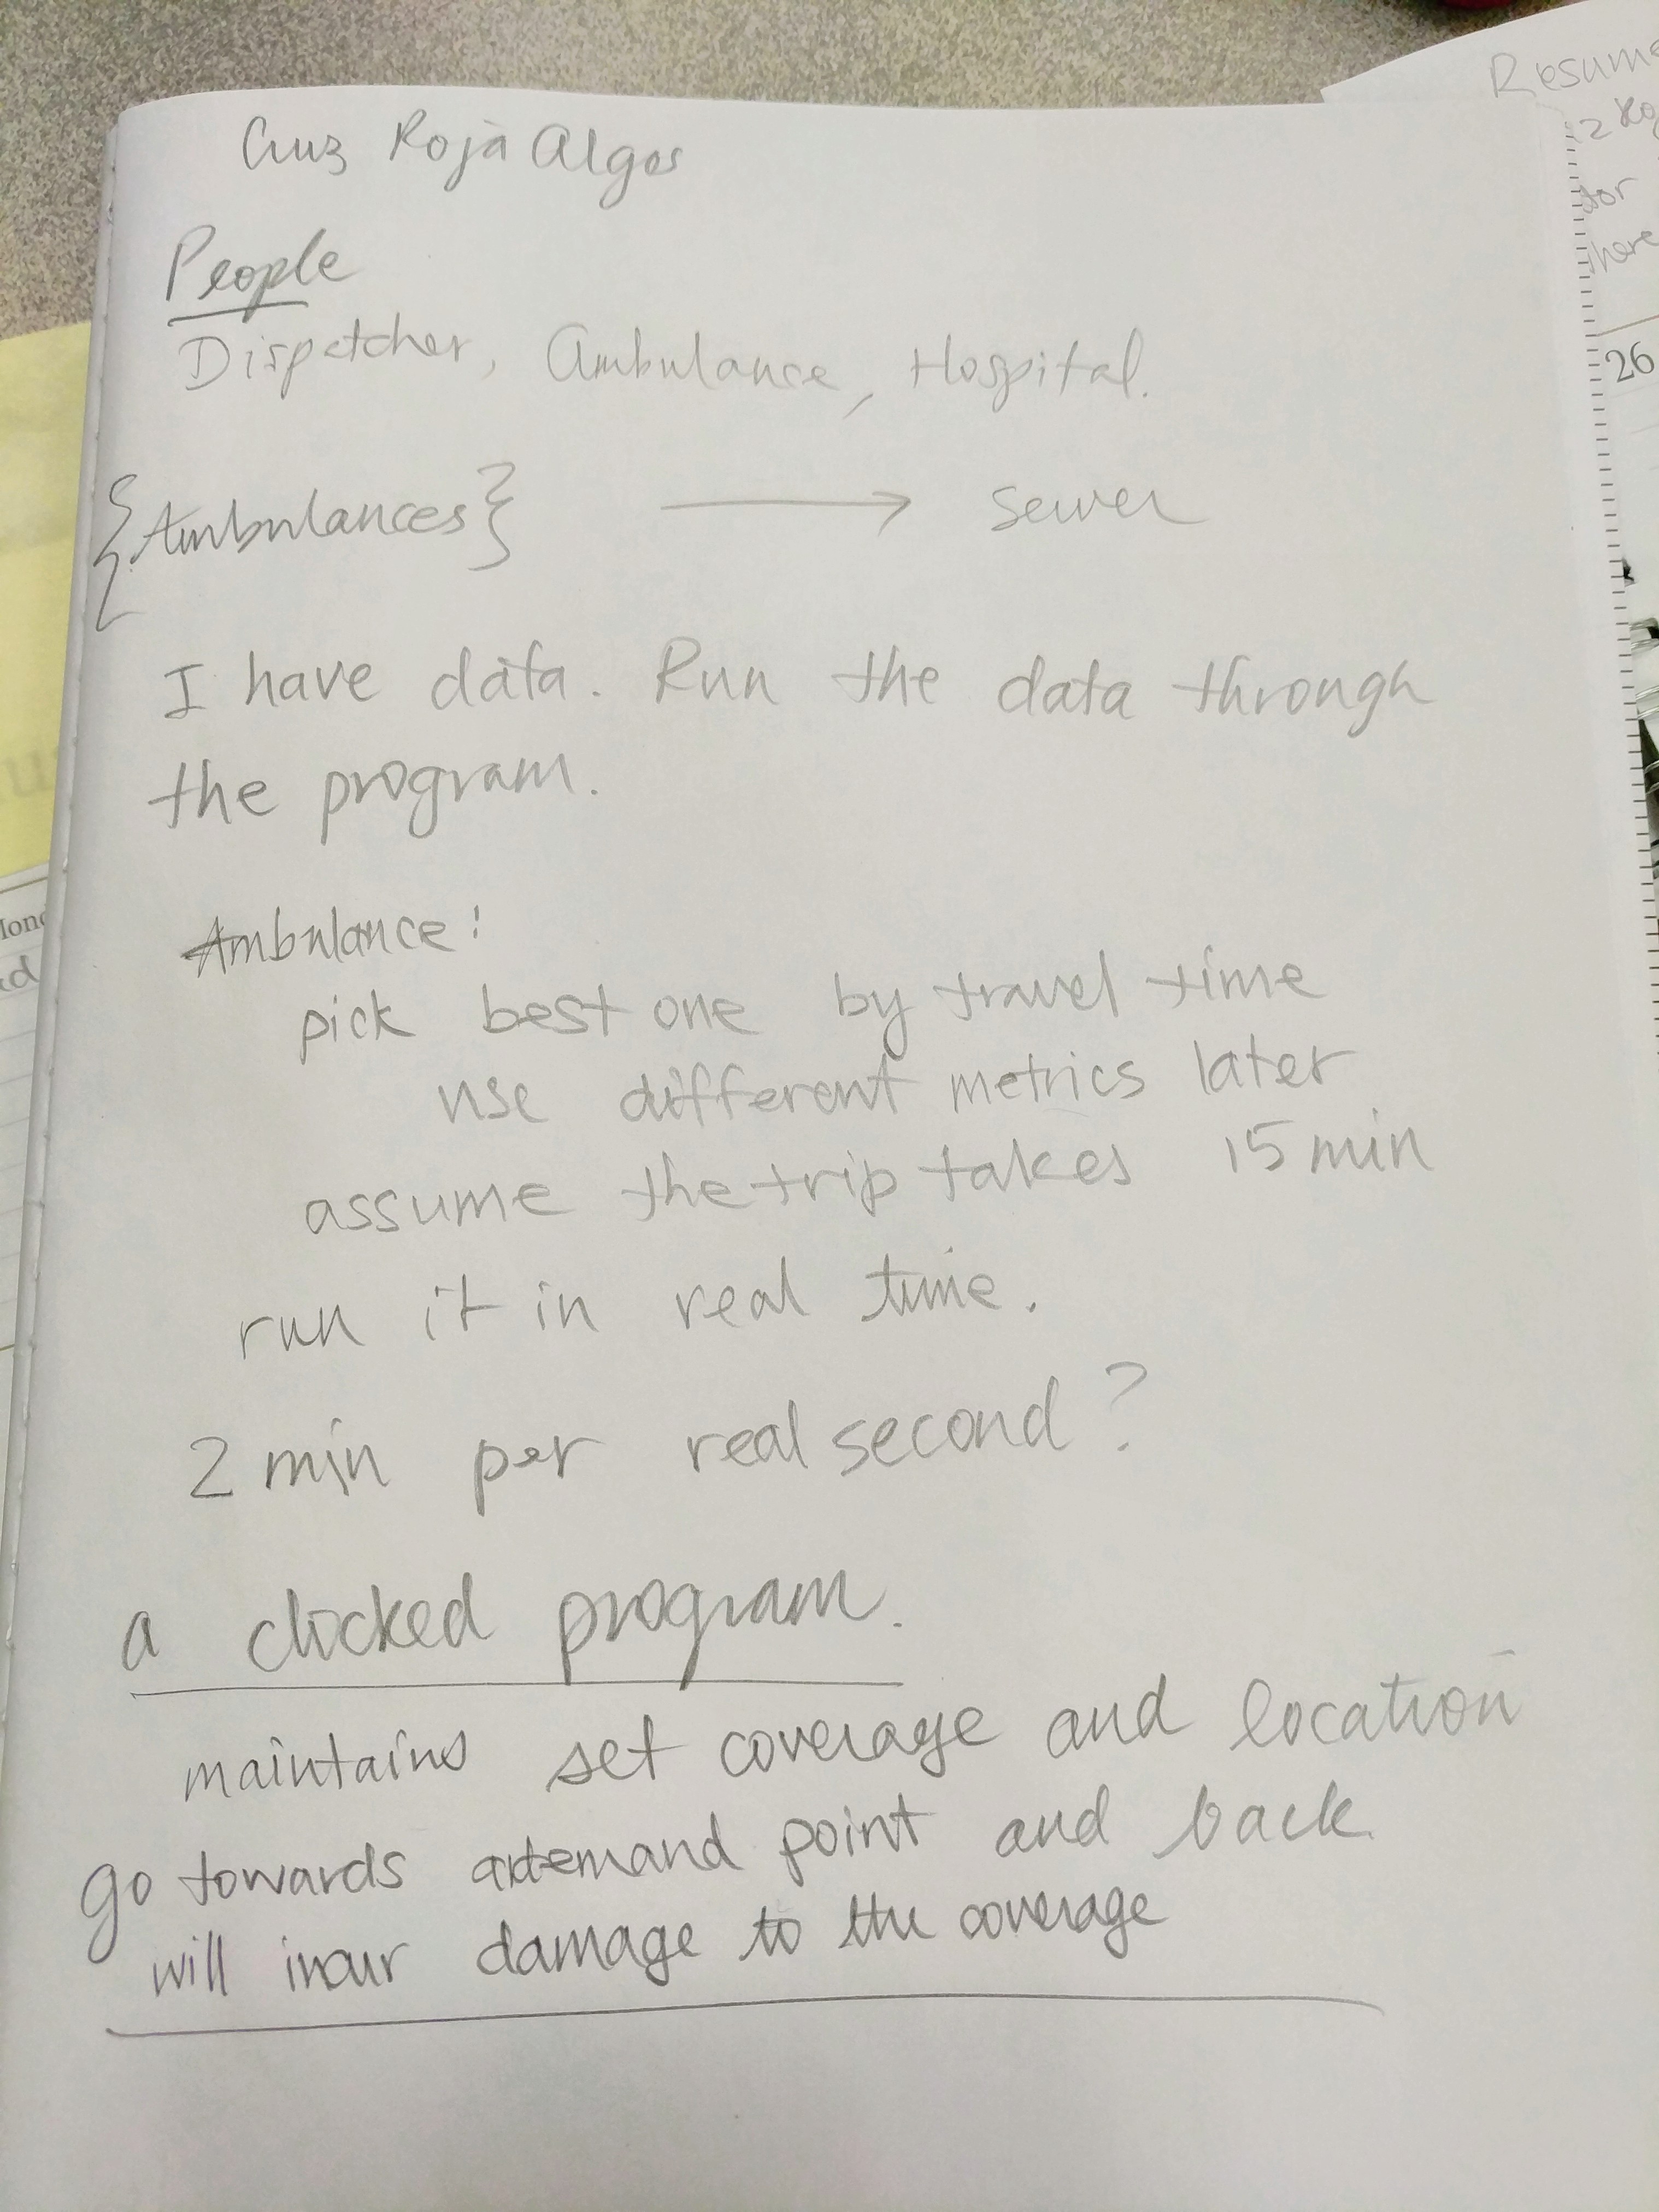 Cruz Roja Algos
People
Dispatcher, Ambulance, Hospital.
{Ambulances} → sewer
I have data. Run the data through
the program.
Ambulance:
pick best one by travel time
use different metrics later
assume the trip takes 15 min
run it in real time.
2 min per real second?
a clocked program.
maintains set coverage and location
go towards demand point and back
will incur damage to the coverage
Resume
for
here
26